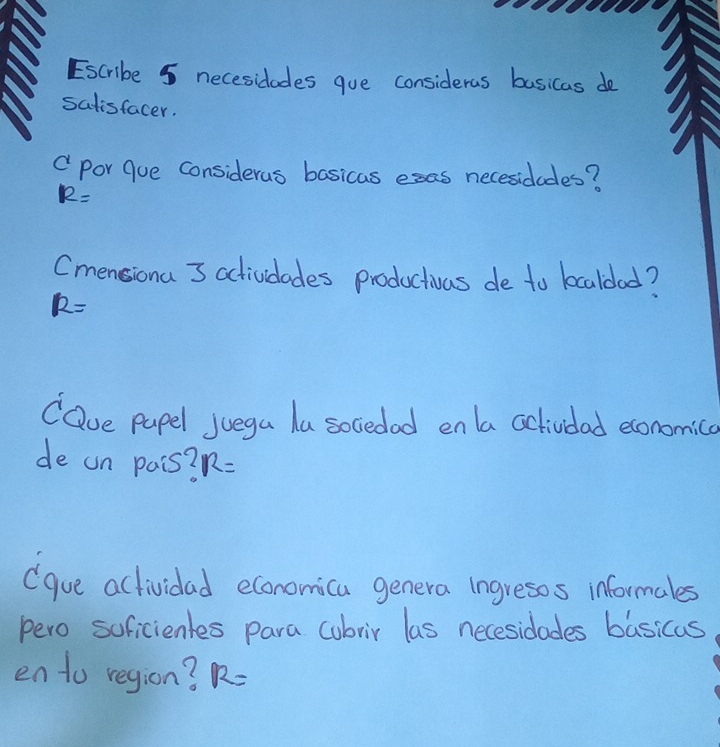 Escribe 5 necesidades que consideras basicas de
satisfacer.
¿por que consideras basicas esas necesidades?
R=
¿menciona 3 actividades productivas de tu localidad?
R=
¿Que papel juega la sociedad en la actividad economica
de un pais? R=
¿que actividad economica genera ingresos informales
pero suficientes para cubrir las necesidades básicas
en tu region? R=